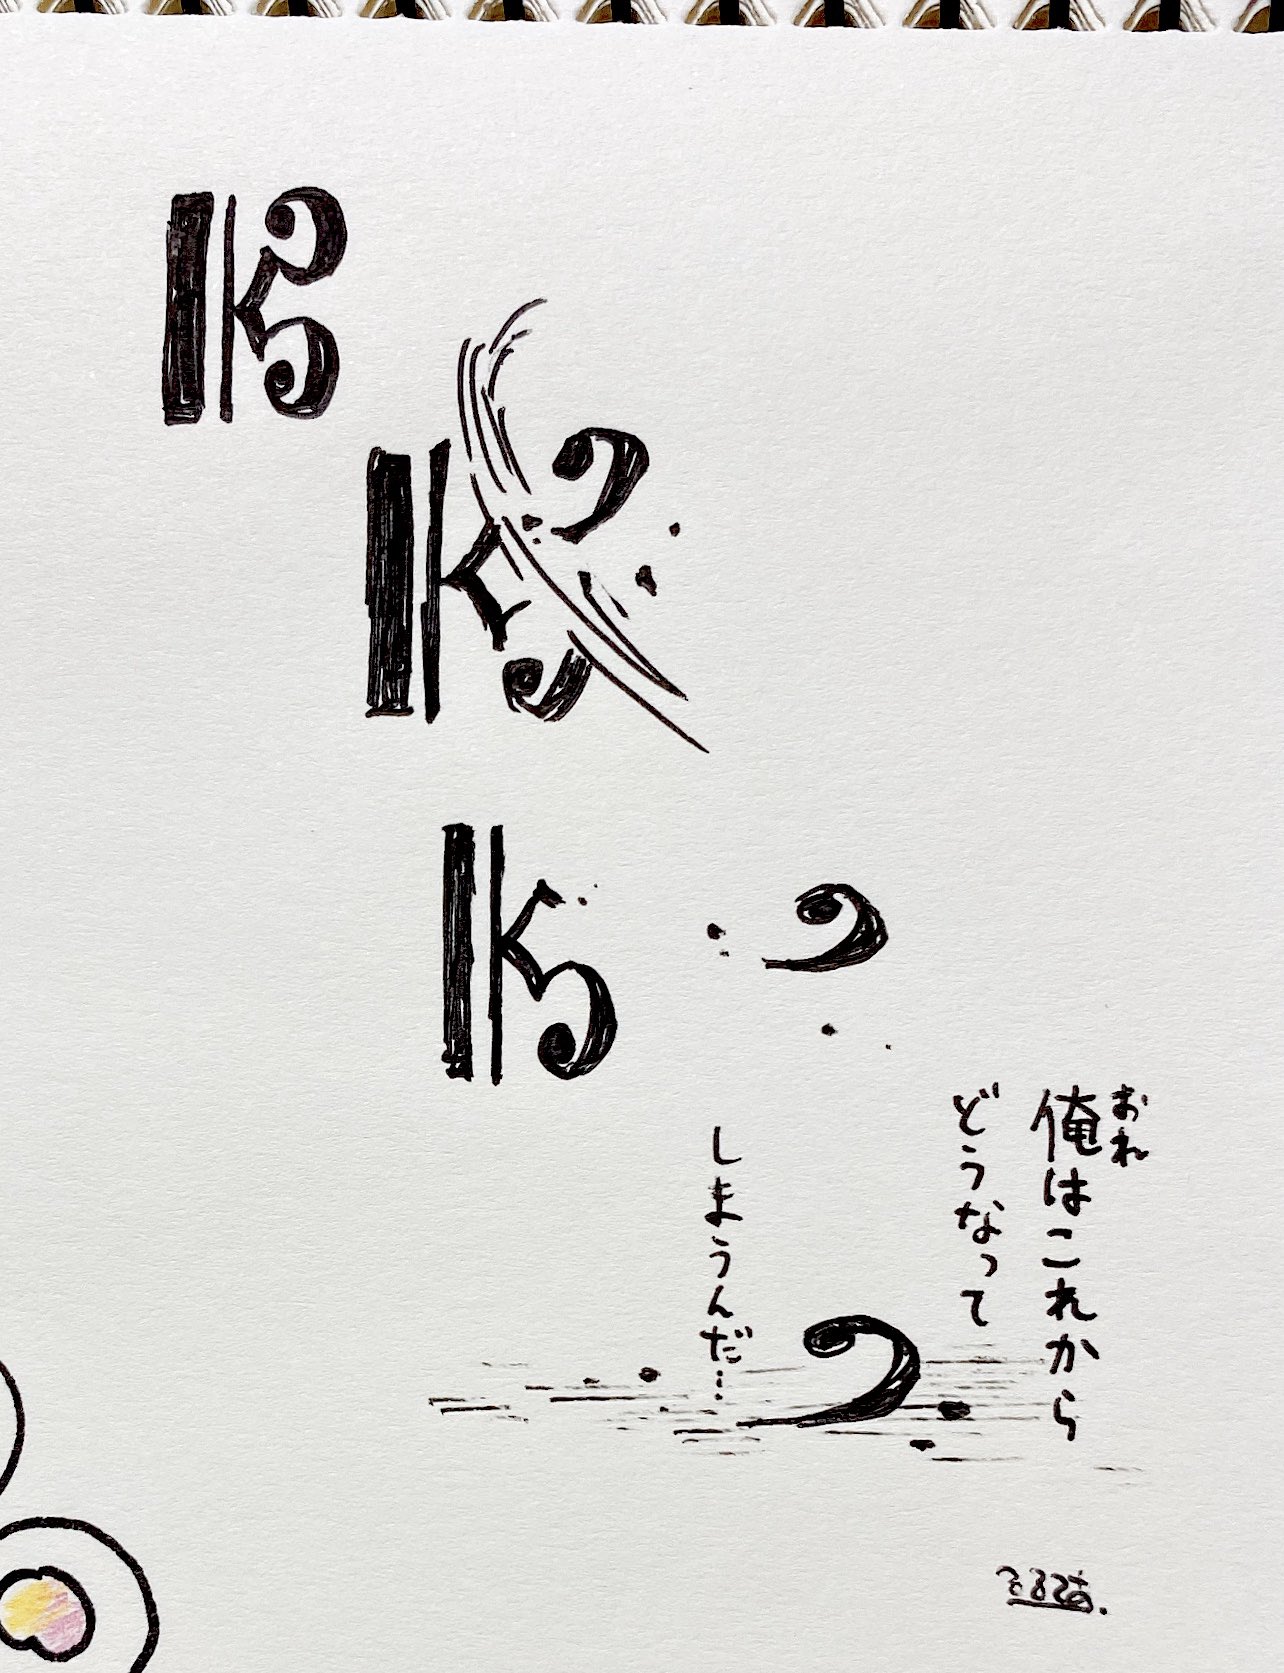 俺はこれから
おれ
どうなって
しまうんだ…